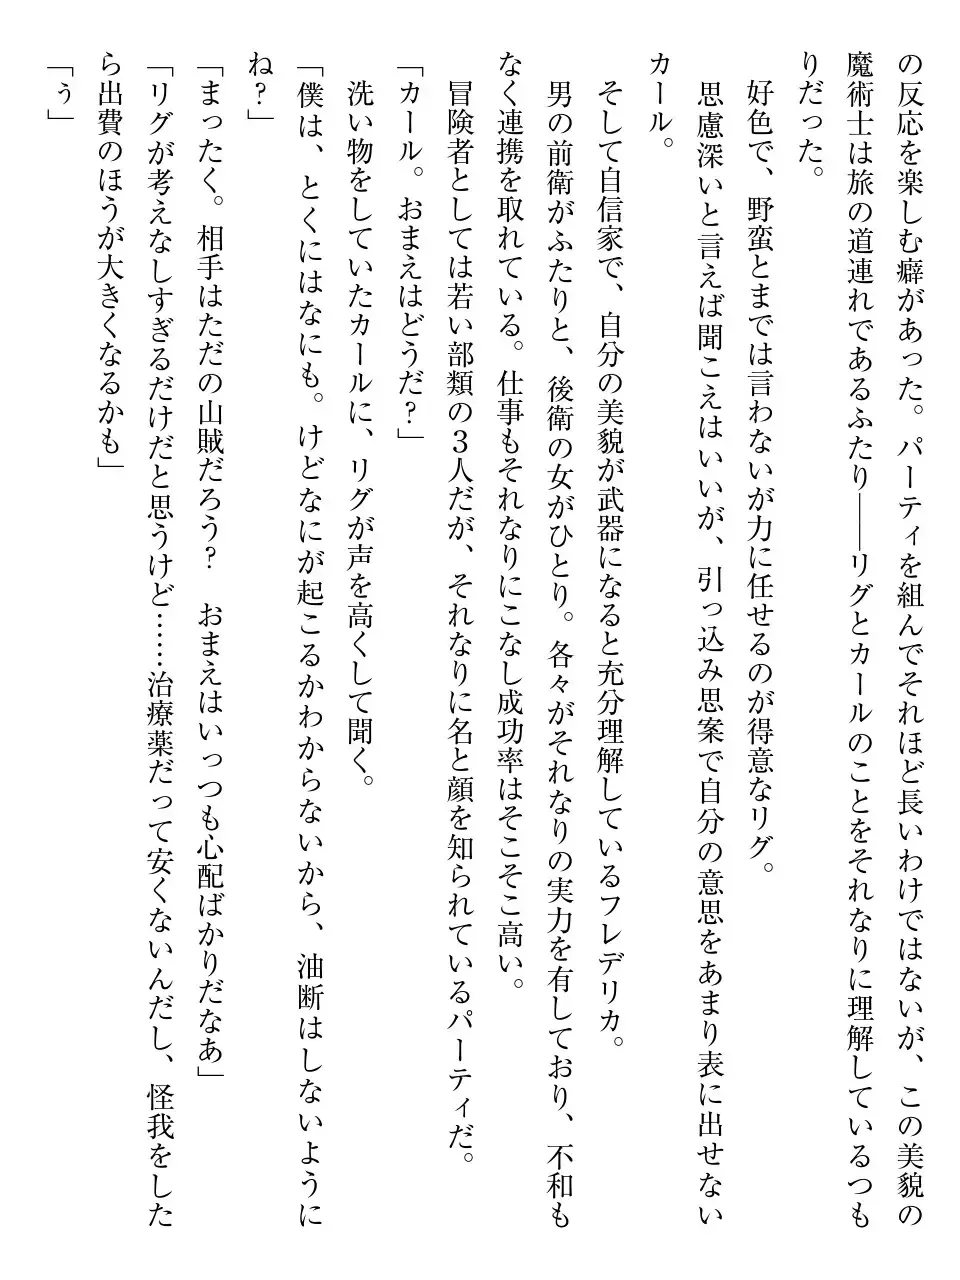 の反応を楽しむ癖があった。パーティを組んでそれほど長いわけではないが、この美貌の
魔術士は旅の道連れであるふたり――リグとカールのことをそれなりに理解しているつも
りだった。
好色で、野蛮とまでは言わないが力に任せるのが得意なリグ。
思慮深いと言えば聞こえはいいが、引っ込み思案で自分の意思をあまり表に出せない
カール。
そして自信家で、自分の美貌が武器になると充分理解しているフレデリカ。
男の前衛がふたりと、後衛の女がひとり。各々がそれなりの実力を有しており、不和も
なく連携を取れている。仕事もそれなりにこなし成功率はそこそこ高い。
冒険者としては若い部類の３人だが、それなりに名と顔を知られているパーティだ。
「カール。おまえはどうだ？」
洗い物をしていたカールに、リグが声を高くして聞く。
「僕は、とくにはなにも。けどなにが起こるかわからないから、油断はしないように
ね？」
「まったく。相手はただの山賊だろう？　おまえはいっつも心配ばかりだなあ」
「リグが考えなしすぎるだけだと思うけど……治療薬だって安くないんだし、怪我をした
ら出費のほうが大きくなるかも」
「ぅ」